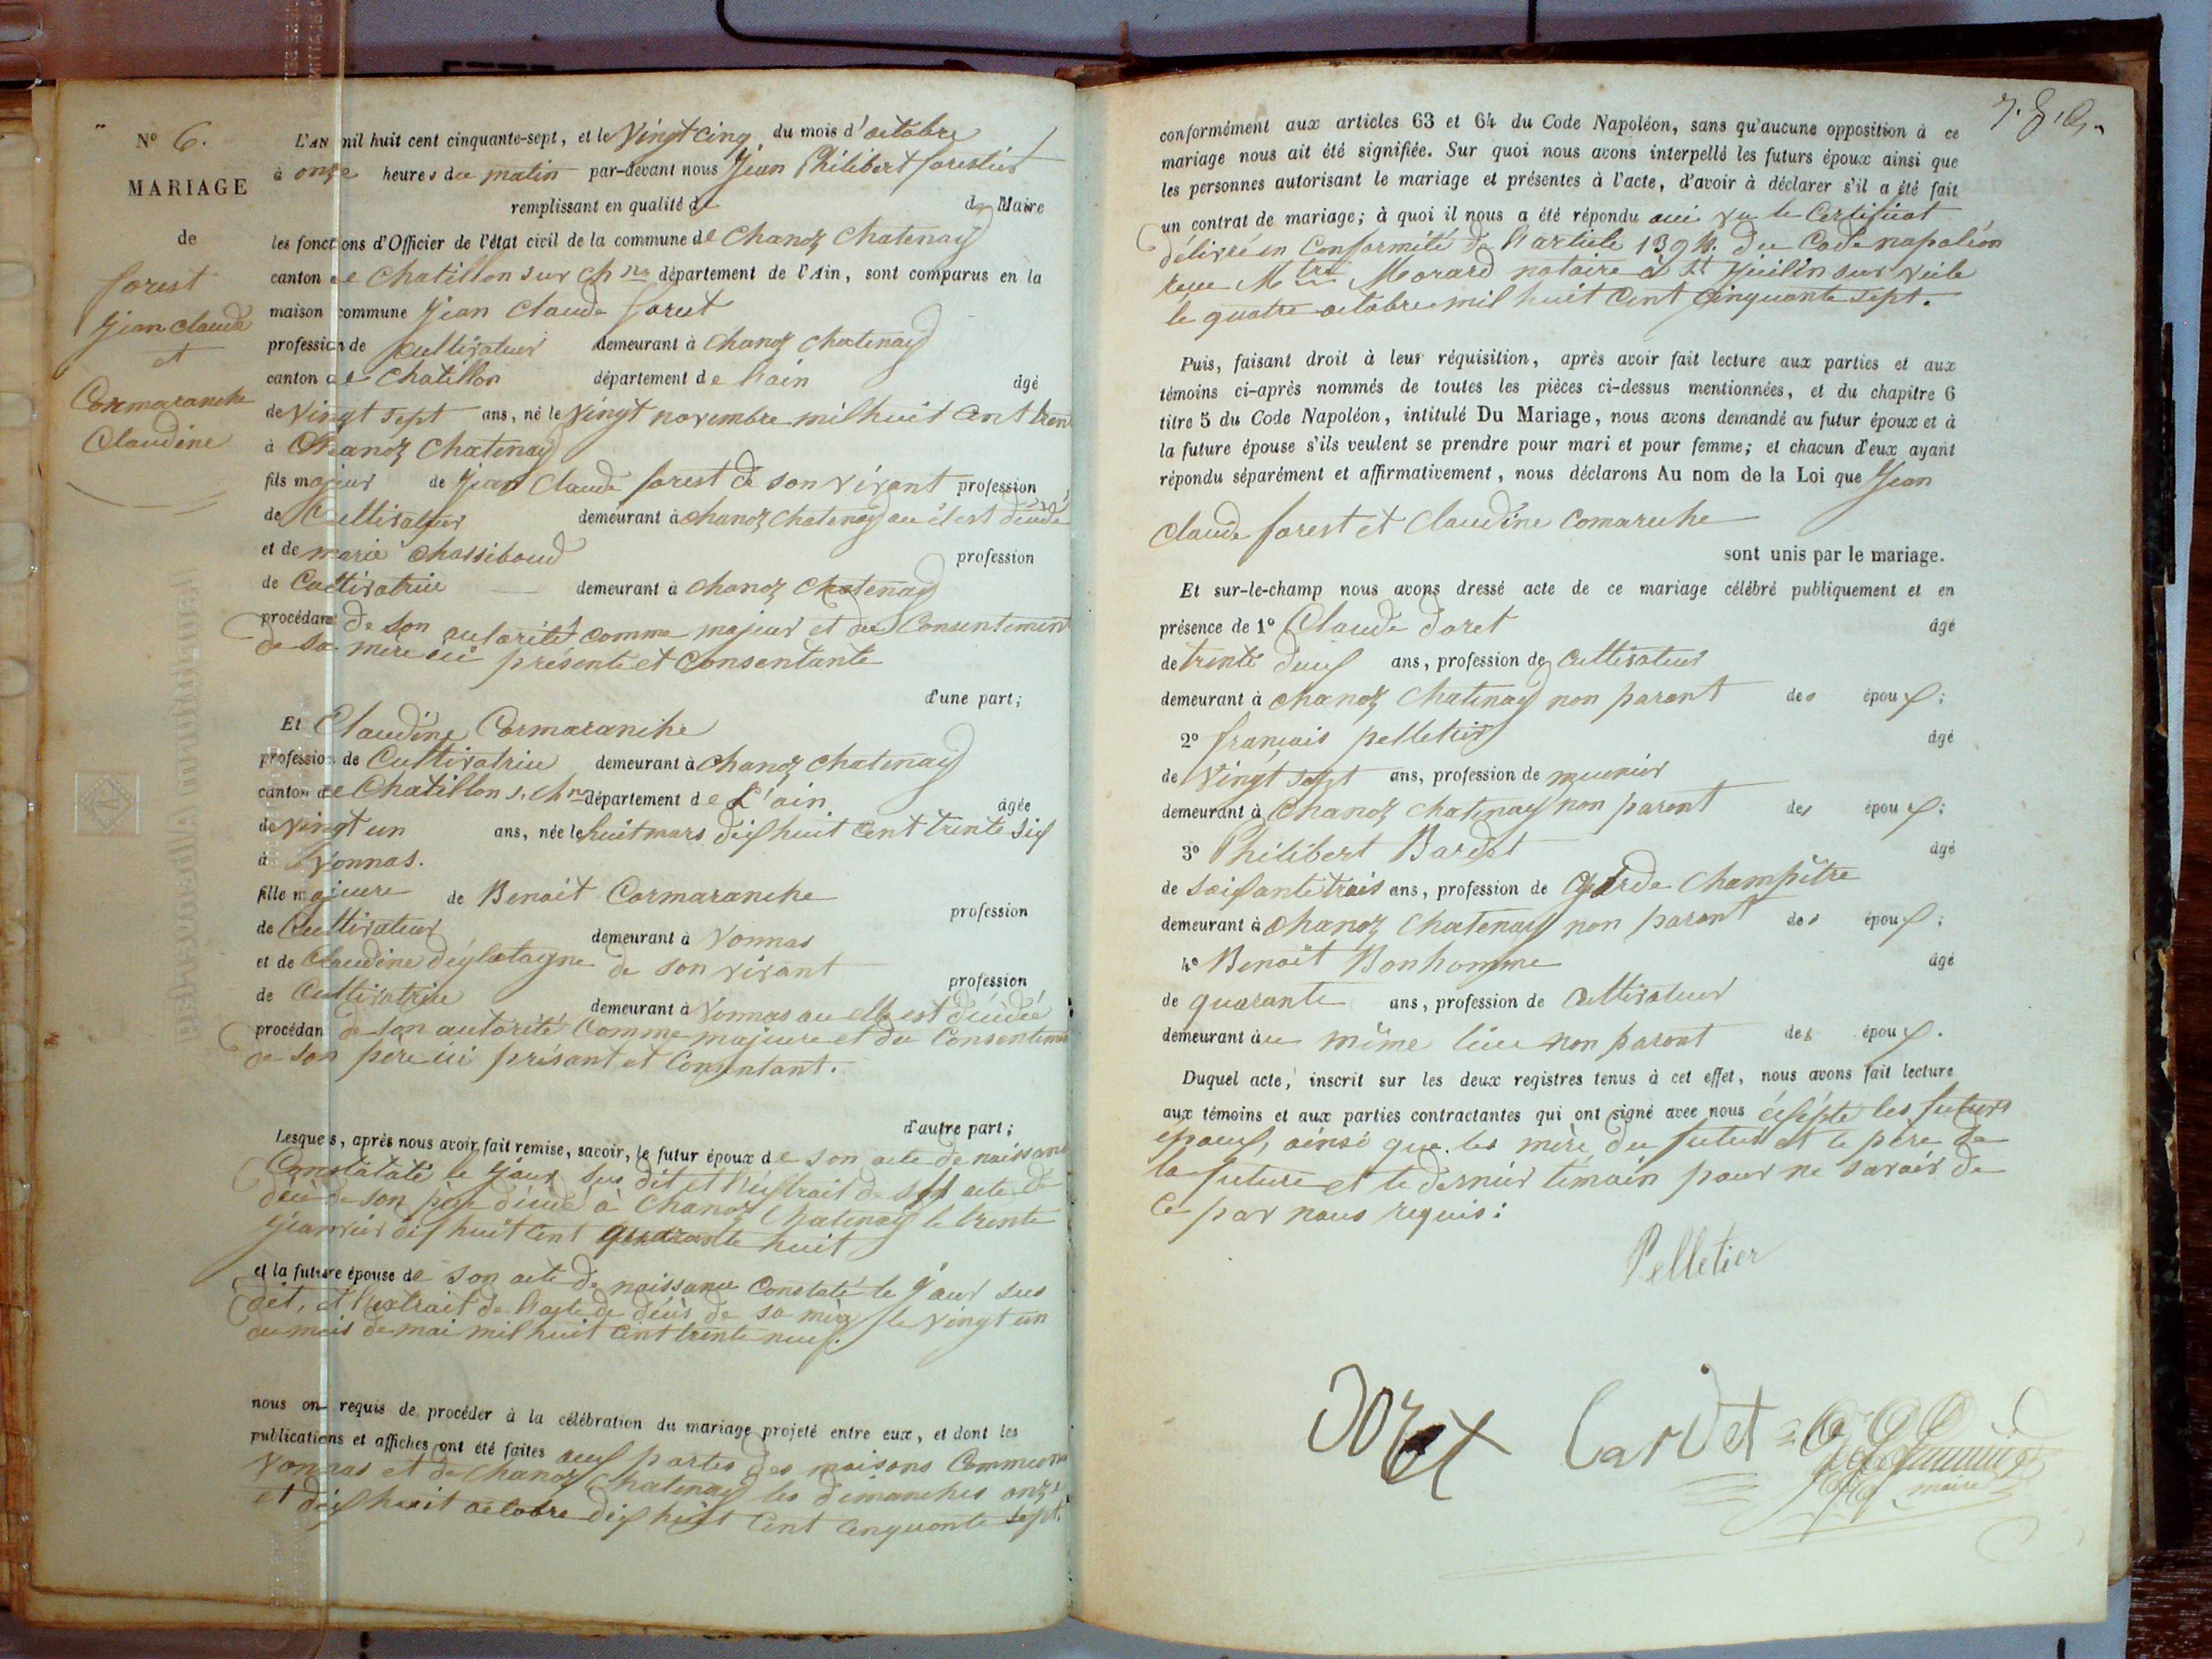 N° 6.
MARIAGE
de
forest
Jean claude
et
Cormaranche
Claudine
L'AN mil huit cent cinquante-sept, et le Vingt cinq du mois d'octobre
à onze heures du matin par-devant nous Jean Philibert forestier
remplissant en qualité de Maire
les fonctions d'Officier de l'état civil de la commune de Chanoz Chatenay
canton de Chatillon sur Ch ne département de l'Ain, sont comparus en la
maison commune Jean Claude forest
profession de Cultivateur demeurant à Chanoz Chatenay
canton de Chatillon département de l'ain âgé
de Vingt sept ans, né le Vingt novembre mil huit Cent tren
à Chanoz Chatenay
fils majeur de Jean Claude forest de son vivant profession
de Cultivateur demeurant à chanoz chatenay ou il est décédé
et de marie Chassiboud profession
de Cultivatrice demeurant à Chanoz Chatenay
procédant de son autorité comme majeur et du Consentement
de sa mère ici présente et Consentante
d'une part;
Et Claudine Cormaranche
profession de Cultivatrice demeurant à Chanoz Chatenay
canton de Chatillon s. Ch ne département de L'ain âgée
de Vingt un ans, née le huit mars dix huit Cent trente six
à Vonnas.
fille majeure de Benoit Cormaranche
profession
de Cultivateur demeurant à Vonnas
et de Claudine déglatagne de son vivant
profession
de Cultivatrice demeurant à Vonnas ou elle est décédée
procédan de son autorité Comme majeure et du Consentemen
de son père ici présant et Consentant.
d'autre part;
Lesquels, après nous avoir fait remise, savoir, le futur époux de son acte de naissance
Constataté le jour sus dit et l'extrait de acte de
décè de son père décédé à Chanoz Chatenay le trente
janvier dix huit Cent quarante huit
et la future épouse de son acte de naissance Constaté le jour sus
dit, et l'extrait de l'acte de décès de sa mère le Vingt un
du mois de mai mil huit Cent trente neuf.
nous on requis de procéder à la célébration du mariage projeté entre eux, et dont les
publications et affiches ont été faites aux portes des maisons Commune
Vonnas et de Chanoz Chatenay les dimanches onze
et dix huit octobre dix huit Cent Cinquante sept.
conformément aux articles 63 et 64 du Code Napoléon, sans qu'aucune opposition à ce
mariage nous ait été signifiée. Sur quoi nous avons interpellé les futurs époux ainsi que
les personnes autorisant le mariage et présentes à l'acte, d'avoir à déclarer s'il a été fait
un contrat de mariage; à quoi il nous a été répondu oui vu le Certificat
délivré en Conformité de l'article 1394. du Code napoléon
M tre Morard notaire à St Julien sur veile
le quatre octobre mil huit Cent Cinquante sept.
Puis, faisant droit à leur réquisition, après avoir fait lecture aux parties et aux
témoins ci-après nommés de toutes les pièces ci-dessus mentionnées, et du chapitre 6
titre 5 du Code Napoléon, intitulé Du Mariage, nous avons demandé au futur époux et à
la future épouse s'ils veulent se prendre pour mari et pour femme; et chacun d'eux ayant
répondu séparément et affirmativement, nous déclarons Au nom de la Loi que Jean
Claude forest et Claudine Comaruche
sont unis par le mariage.
Et sur-le-champ nous avons dressé acte de ce mariage célébré publiquement et en
présence de 1° Claude doret âgé
de trente deux ans, profession de Cultivateur
demeurant à Chanoz Chatenay non parant des époux;
2° françois pelletier âgé
de Vingt sept ans, profession de meunier
demeurant à Chanoz Chatenay non parant des époux;
3° Philibert Bardet âgé
de soixante trois ans, profession de Garde Champêtre
demeurant à Chanoz Chatenay non parant des époux;
4° Benoit Bonhomme âgé
de quarante ans, profession de Cultivateur
demeurant au même lieu non parant des époux.
Duquel acte, inscrit sur les deux registres tenus à cet effet, nous avons fait lecture
aux témoins et aux parties contractantes qui ont signé avec nous éxsépté les futurs
époux, ainsi que les mère du futur et le père de
la future et le dernier témoin pour ne savoir de
Ce par nous requis:
Pelletier
maire